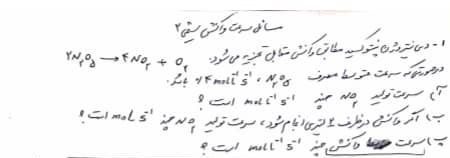 مسائل سرعت واکنش شیمی ۲
۱- دی نیتروژن پنتوکسید مطابق واکنش مقابل تجزیه می‌شود. 2N₂O₅ → 4NO₂ + O₂
درصورتی که سرعت متوسط مصرف N₂O₅، molL⁻¹s⁻¹ باشد.
آ) سرعت تولید NO₂ چند molL⁻¹s⁻¹ است؟
ب) اگر واکنش در ظرف لیتری انجام شود، سرعت تولید NO₂ چند mols⁻¹ است؟
پ) سرعت واکنش چند molL⁻¹s⁻¹ است؟